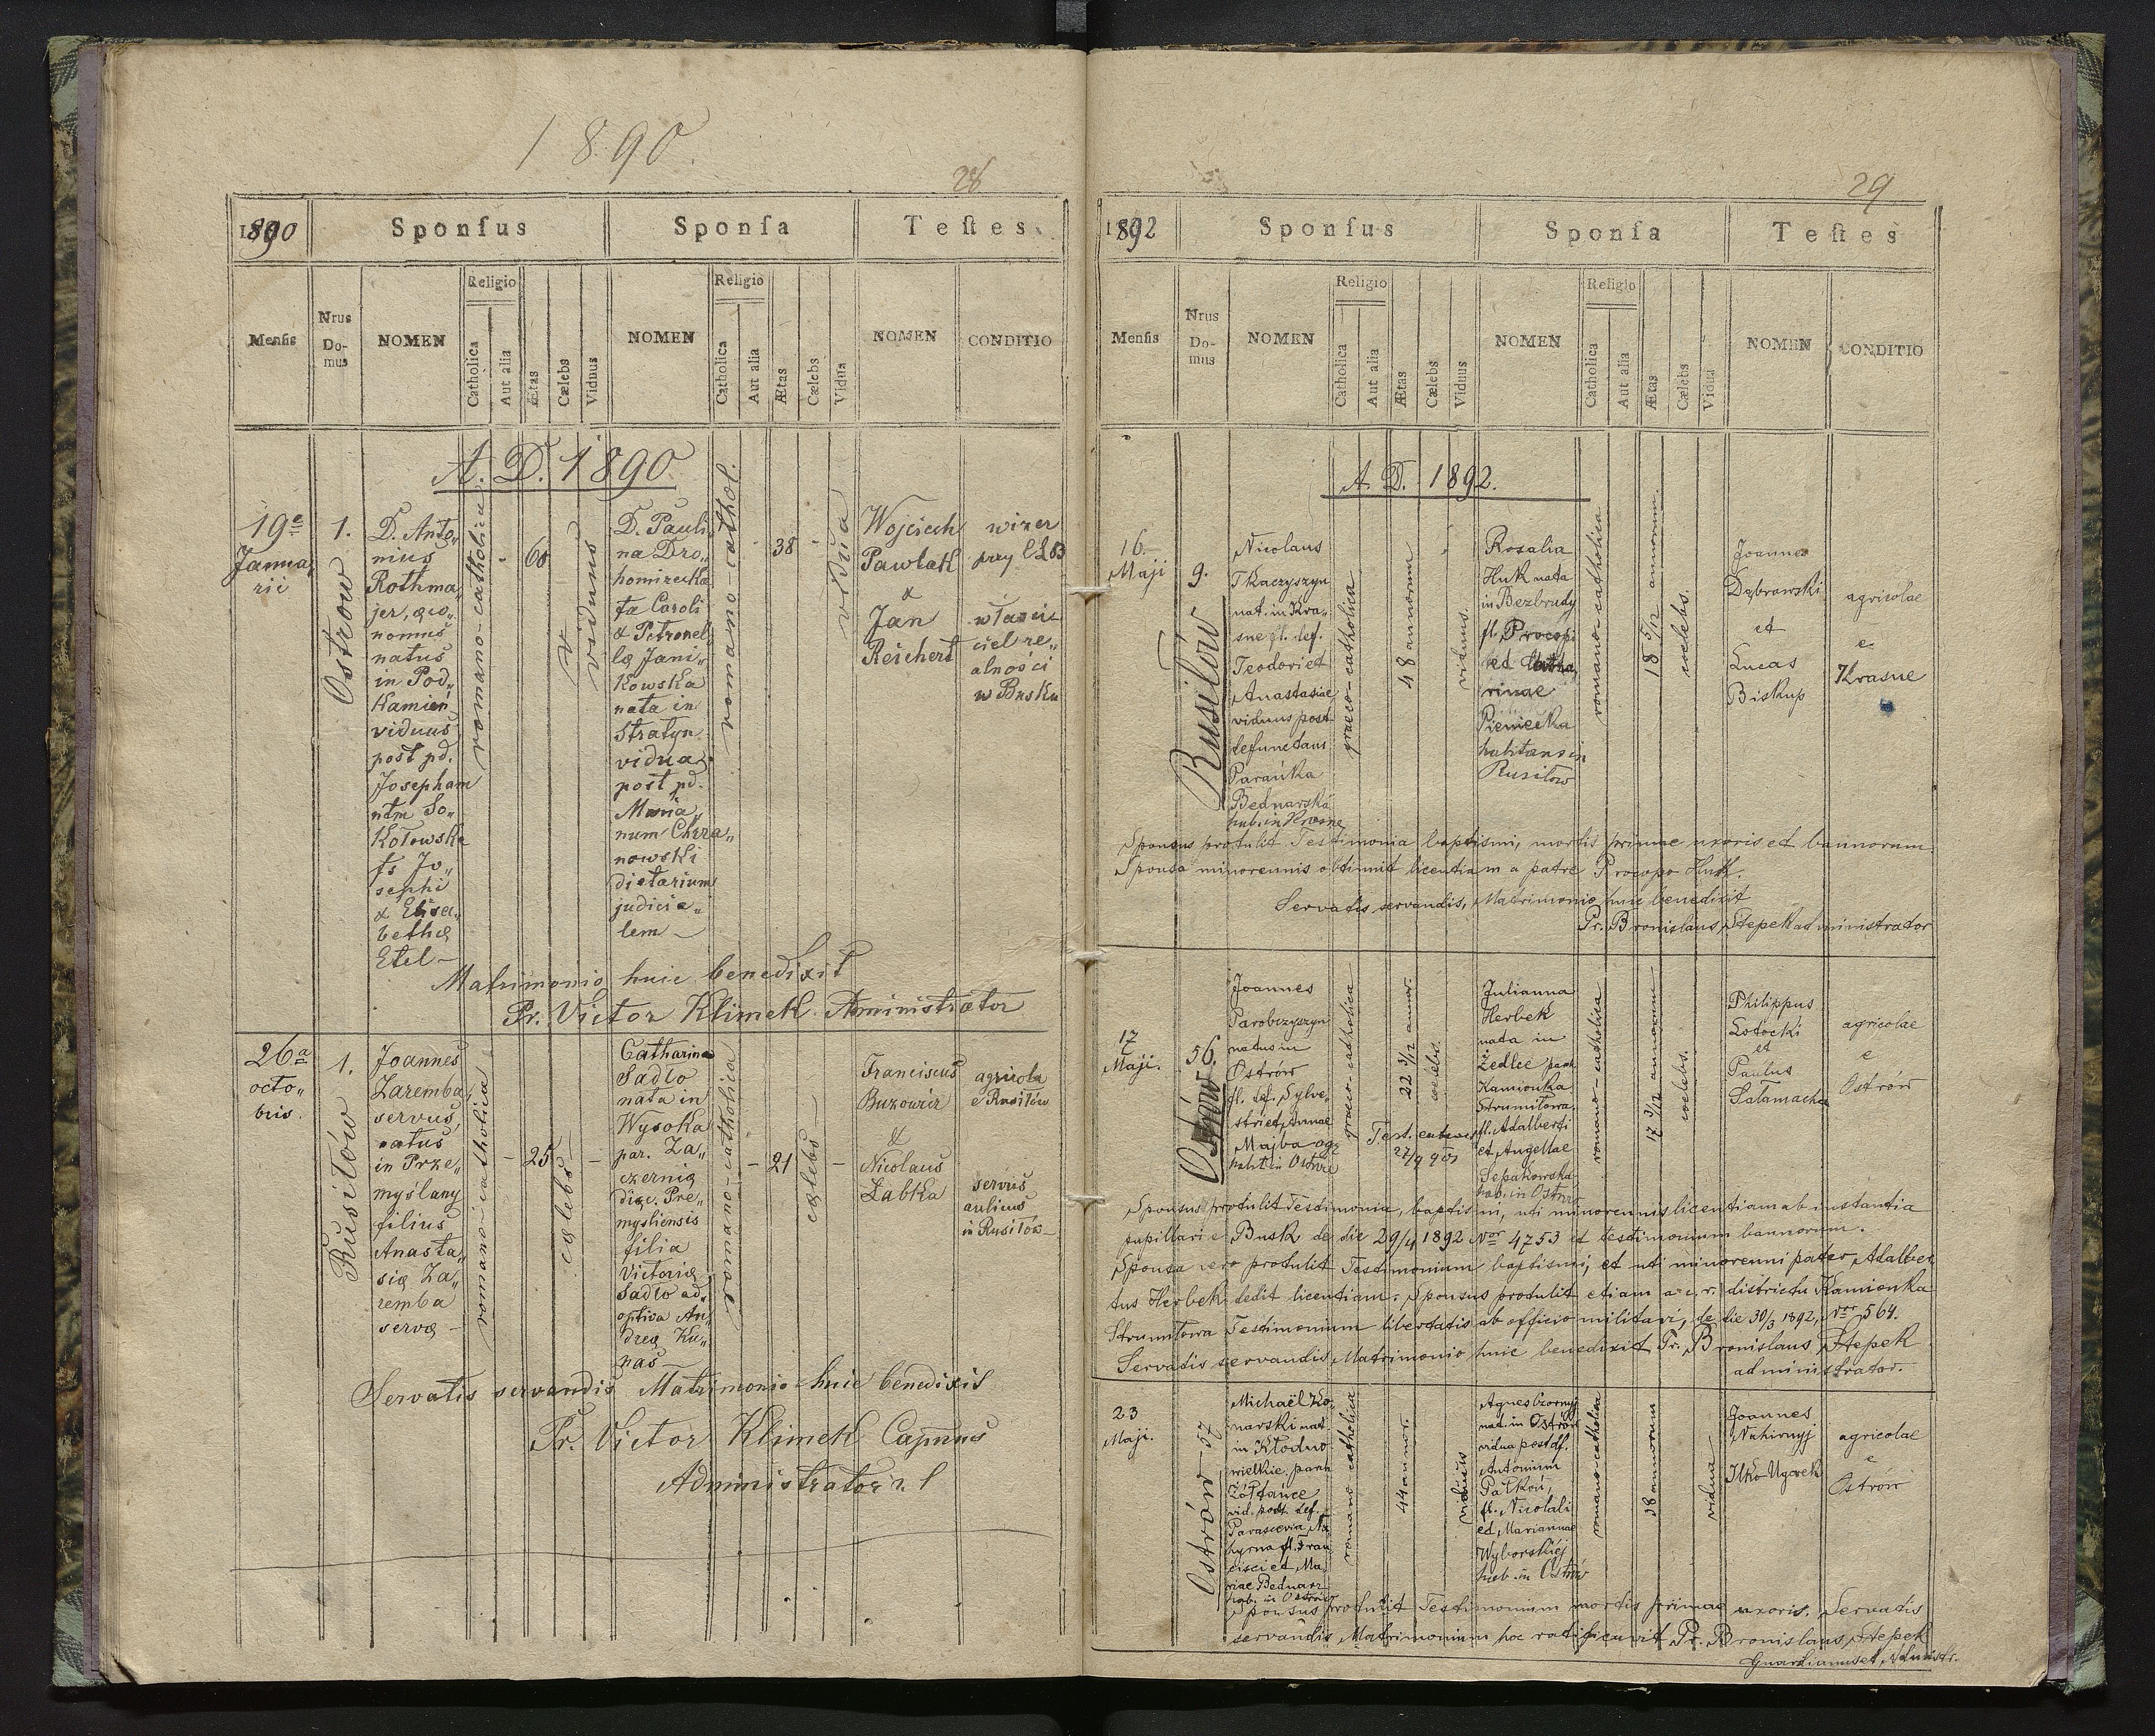 1890.
28
1890
Sponſus
Sponſa
Teſtes
Menſis
Nrus Do-mus
NOMEN
Religio
Catholica
Aut alia
Ætas
Cælebs
Viduus
NOMEN
Religio
Catholica
Aut alia
Ætas
Cælebs
Vidua
NOMEN
CONDITIO
A. D. 1890
19ª
Janua„
rii
1.
Ostrow
D. Anto„
nius
Rothma
jer, œco„
nomus
natus
in Pod„
Kamień
viduus
post pd.
Josepham
ntm So„
Kołowski
fs Jo„
sephi
& Elisa„
bethæ
Etel –
romano-catholica
60
viduus
D. Pauli„
na Dro„
homirecka
fa Caroli
& Petronel
læ Jani„
Kowska
nata in
Stratyn
vidua
post pd.
Maria„
num Chrza„
nowski
dietarium
judicia„
lem –
romano-cathol.
38
vidua
Wojciech
Pawlak
&
Jan
Reichert
wizer
przy
właści
ciel re„
alności
w Busku
Matrimonio huic benedixit
Pr. Victor Klimek Administrator
26ª
octo„
bris.
1.
Rusiłów
Joannes
Zaremba,
servus,
natus
in Prze„
myślany
filius
Anasta„
siæ Za„
remba
servæ –
romano-catholica
25
cælebs
Catharina
Sadło
nata in
Wysoka
par. Za„
czernie
diæc. Pre„
mysliensis
filia
Victoriæ
Sadło ad„
optiva An„
dreæ Ku„
nas –
romano-catholica
21
cælebs
Franciscus
Bukowicz
&
Nicolaus
Żabka
agricola
e Rusiłów
servus
aulicus
in Rusiłów
Servatis servandis Matrimonio huic benedixit
Pr. Victor Klimek Capnus
Administrator r. l
29
1892
Sponſus
Sponſa
Teſtes
Menſis
Nrus Do-mus
NOMEN
Religio
Catholica
Aut alia
Ætas
Cælebs
Viduus
NOMEN
Religio
Catholica
Aut alia
Ætas
Cælebs
Vidua
NOMEN
CONDITIO
A. D. 1892.
16.
Maji
9.
Rusiłów
Nicolaus
Tkaczyszyn
nat. in Kra„
sne fl. def.
Teodori et
Anastasiae
viduus post
defunctam
Parańka
Bednarska
hab. in Krasne
graeco-catholica
48 annorum
viduus.
Rosalia
Huk nata
in Bezbrudy
fl. Procopi
et Catha
rinae
Pieniecka
habitans in
Rusiłów
romano-catholica
18 5/12 annorum.
coelebs.
Joannes
Dąbrowski
et
Lucas
Biskup
agricolae
e
Krasne
Sponsus protulit Testimonia baptismi, mortis primae uxoris et bannorum
Sponsa minorennis obtinuit licentiam a patre Procopo Huk.
Servatis servandis, Matrimonio huic benedixit
Pr. Bronislaus Stepek administrator
17
Maji.
56.
Ostrów
Joannes
Parobczyszyn
natus in
Ostrów
fl. def. Sylve„
stri et Annae
Majba agr
habit in Ostrów
graeco-catholica
22 3/12 annor.
coelebs.
Test. 27/9 905
Julianna
Herbek
nata in
Żedlec paroh
Kamionka
Strumiłowa
fl. Adalberti
et Angellae
Sepakowska
hab. in Ostrów
romano-catholica
17 3/12 annorum
coelebs.
Philippus
Łotocki
et
Paulus
Sałamacha
agricolae
e
Ostrów
Sponsus protulit Testimonia, baptismi, uti minorennis licentiam ab instantia
pupillari e Busk de die 29/4 1892 Nor 4753 et testimonium bannorum.
Sponsa vero protulit Testimonium baptismi, et uti minorenni pater Adalber
tus Herbek dedit licentiam. Sponsus protulit etiam a c. r. districtu Kamionka
Strumiłowa Testimonium libertatis ab officio militari, de die 30/3 1892, Nor 564.
Servatis servandis Matrimonio huic benedixit Pr. Bronislaus Stepek
administrator.
23
Maji.
Ostrów 57
Michaël Ko„
narski nat
in Kłodno
wielkie, paroh
Żółtańce
vid. post def.
Parascevia Na
hyrna fl. Fran
cisci et Ma
riae Bednarz
hab. in Ostrów
romano catholica
44 annor.
viduus
Agnes Czornyj
nat. in Ostrów
vidua post df.
Antonium
Pałków,
fl. Nicolai
et Mariannae
Wyborskiej
hab. in Ostrów
romano-catholica
38 annorum
vidua
Joannes
Nahirnyj
Ilko Ugorek
agricolae
e
Ostrów
Sponsus protulit Testimonium mortis primae uxoris. Servatis
servandis Matrimonium hoc ratificavit Pr. Bronislaus Stepek
Guardianus et Administr.